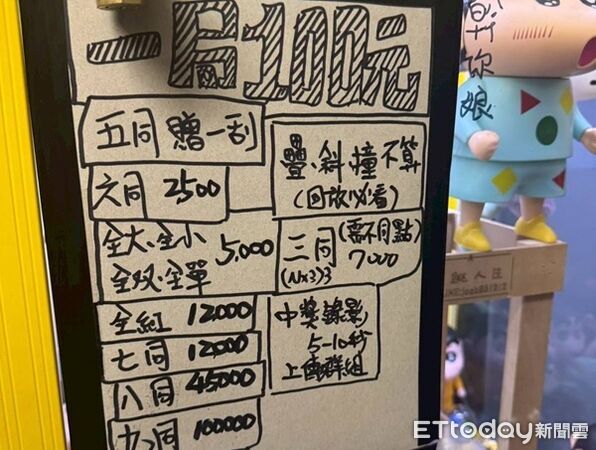 一局100元
五同贈一刮
疊、斜撞不算
(回放必看)
六同 2500
全大、全小
全双、全單
5,000
三同(需不同點)
(N×3)3
7000
全紅 12000
七同 12000
八同 45000
九同 100000
中獎錄影
5-10秒
上傳群組
你娘
人注
ETtoday新聞雲